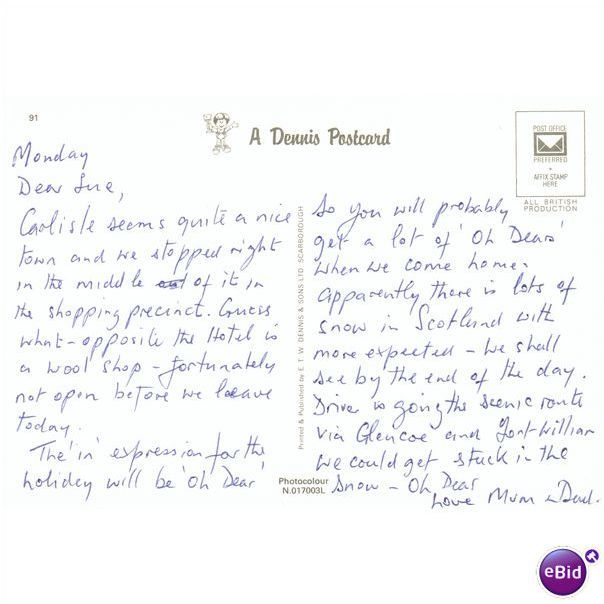 91
A Dennis Postcard
POST OFFICE
PREFERRED
AFFIX STAMP
HERE
ALL BRITISH
PRODUCTION
Monday
Dear Sue,
Carlisle seems quite a nice
town and we stopped right
in the middle of it in
the shopping precinct. Guess
what - opposite the Hotel is
a wool shop - fortunately
not open before we leave
today.
The 'in' expression for the
holiday will be 'Oh Dear'
Printed & Published by E. T. W. DENNIS & SONS LTD. SCARBOROUGH
Photocolour
N.017003L
So you will probably
get a lot of 'Oh Dears'
when we come home.
Apparently there is lots of
snow in Scotland with
more expected - we shall
see by the end of the day.
Driver is going the scenic route
via Glencoe and Fort William
We could get stuck in the
snow - Oh Dear
Love Mum & Dad.
eBid